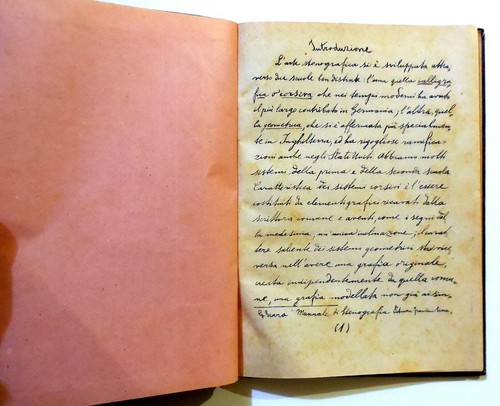 Introduzione
L'arte stenografica si è sviluppata attra-
verso due scuole ben distinte: l'una quella calligra-
fica o corsiva che nei tempi moderni ha avuto
il più largo contributo in Germania; l'altra, quel-
la geometrica, che si è affermata più specialmen-
te in Inghilterra, ed ha rigogliose ramifica-
zioni anche negli Stati Uniti. Abbiamo molti
sistemi della prima e della seconda scuola.
Caratteristica dei sistemi corsivi è l'essere
costituiti da elementi grafici ricavati dalla
scrittura comune e aventi, come i segni del-
la medesima, un'unica inclinazione; il carat-
tere saliente dei sistemi geometrici sta vice-
versa nell'avere una grafia originale,
creata indipendentemente da quella comu-
ne, una grafia modellata non già ai sin-
Manuale di Stenografia
(1)